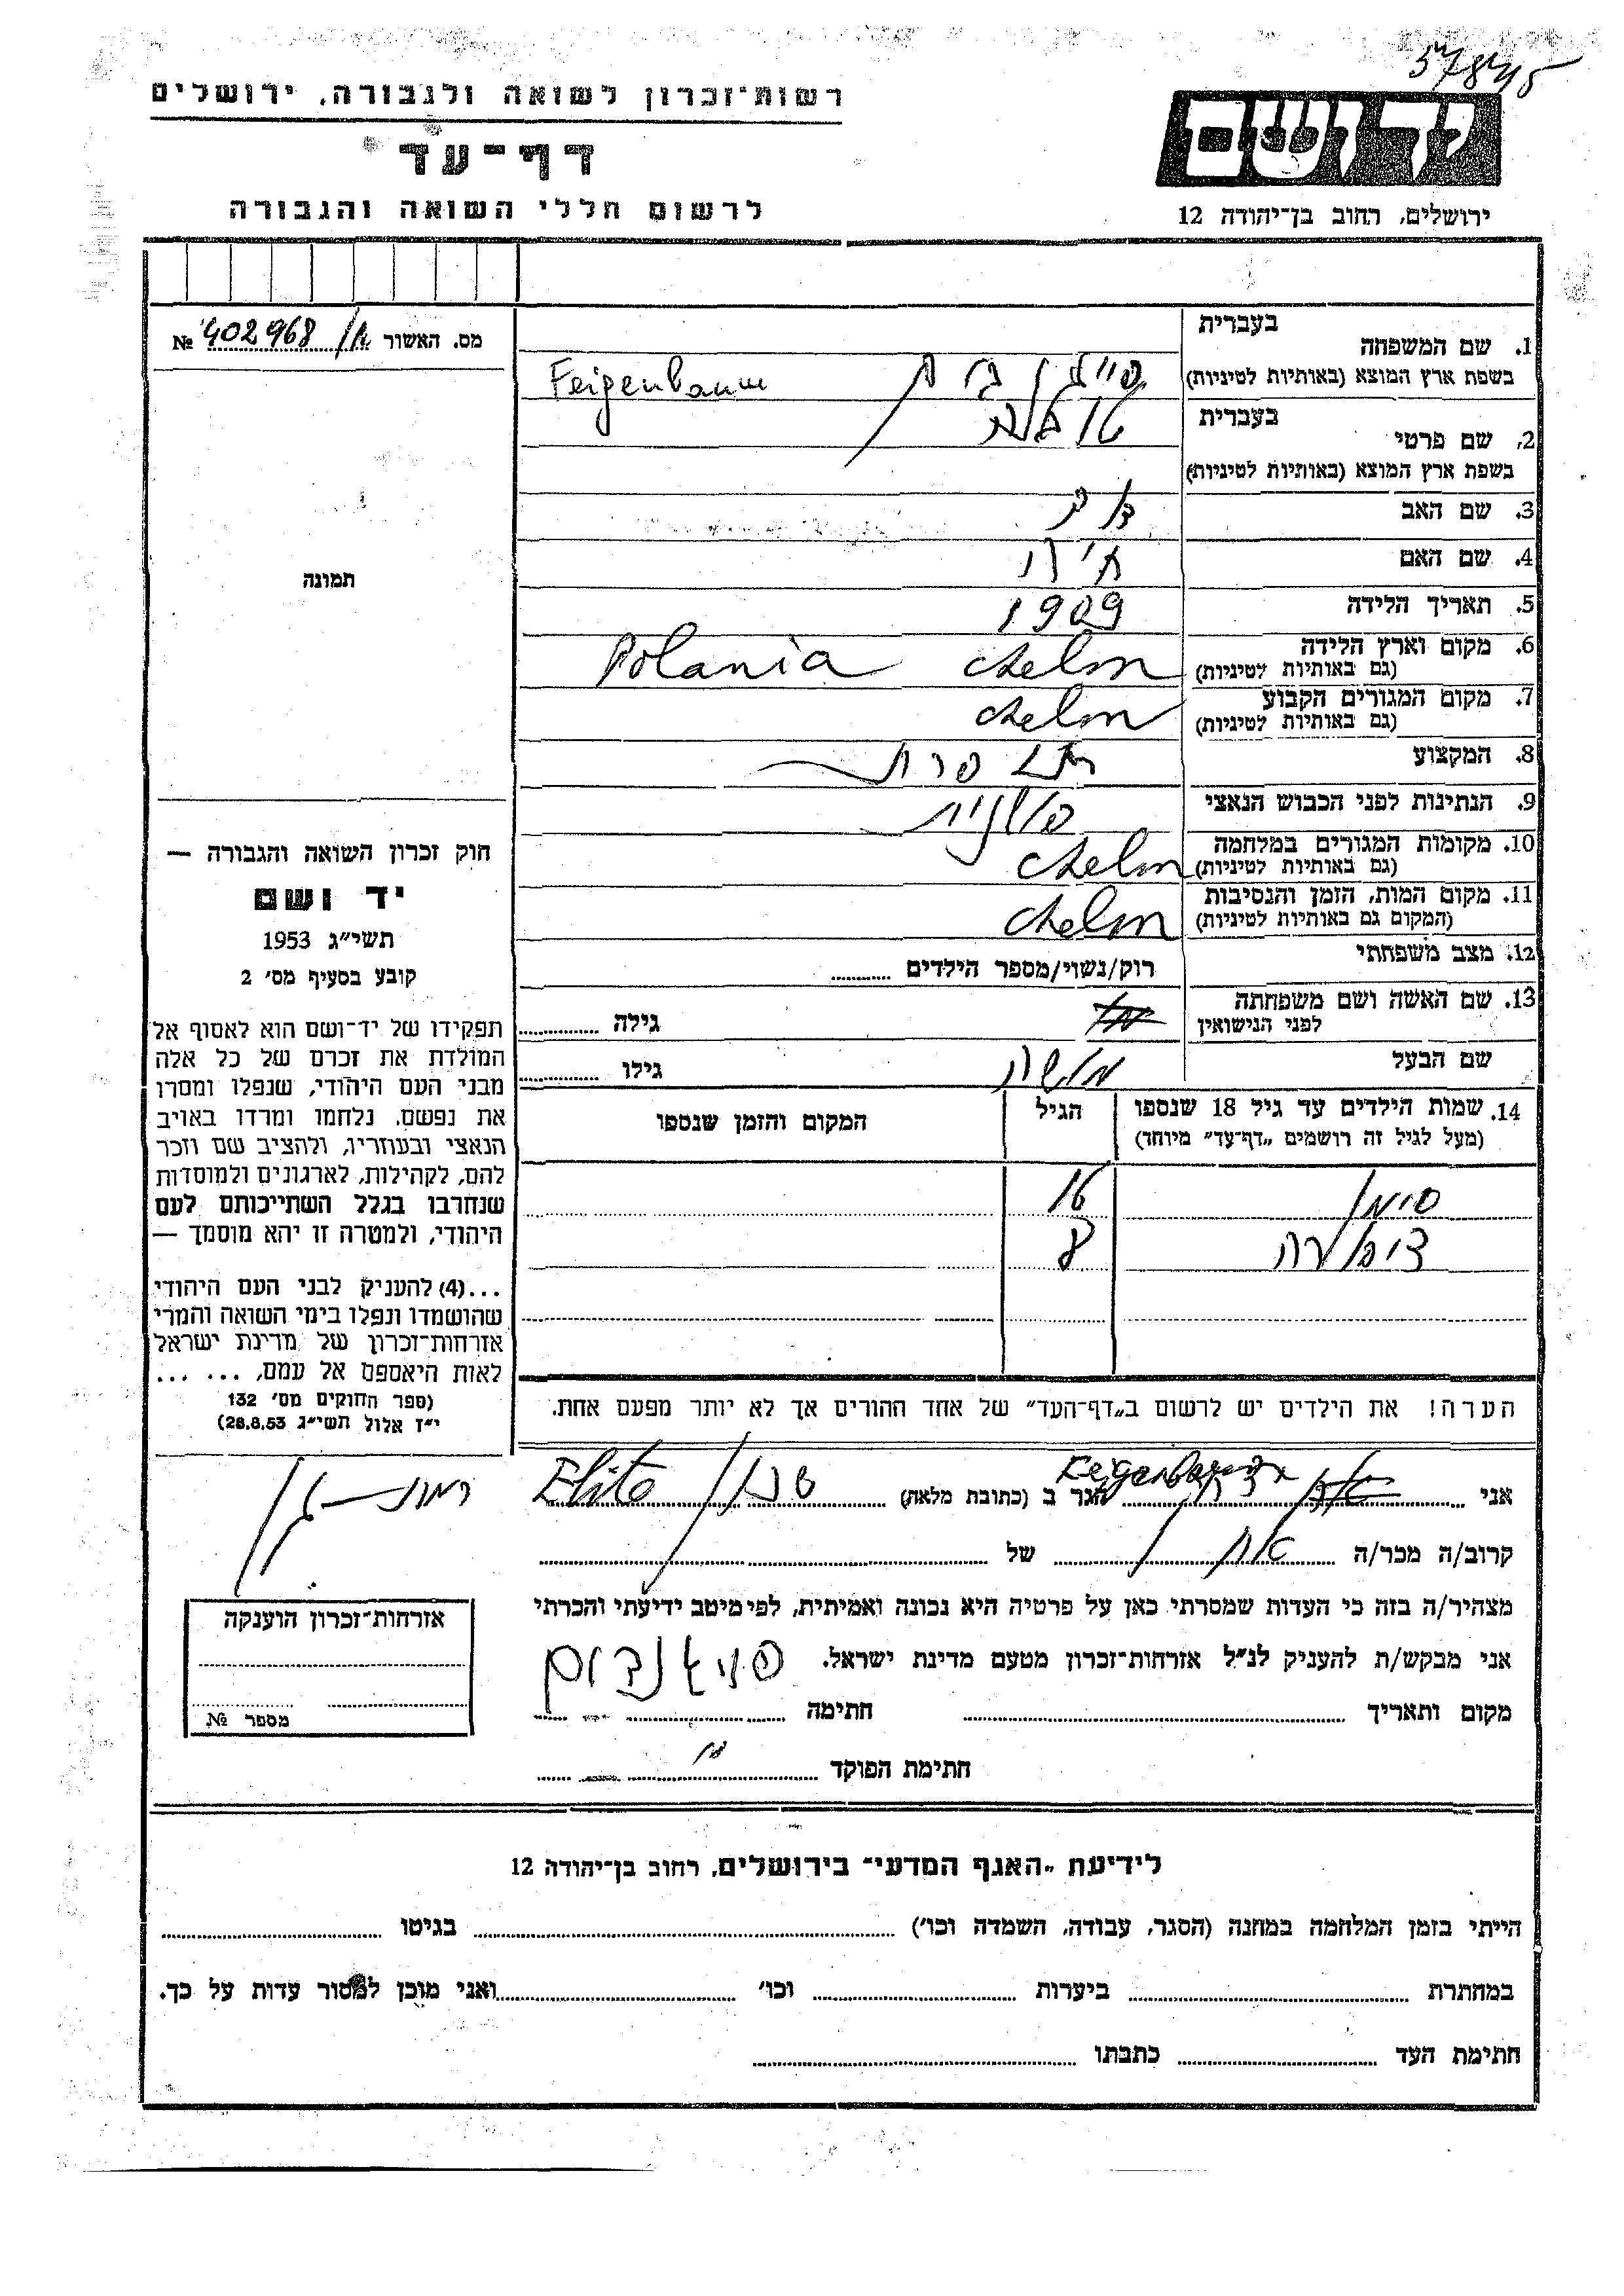 רשות־זכרון לשואה ולגבורה, ירושלים
דף־עד
לרשום חללי השואה והגבורה
יד ושם
ירושלים, רחוב בן־יהודה 12
מס. האשור № 402968
תמונה
1. שם המשפחה בעברית
בשפת ארץ המוצא (באותיות לטיניות) Feigenbaum
2. שם פרטי בעברית
בשפת ארץ המוצא (באותיות לטיניות)
3. שם האב
4. שם האם
5. תאריך הלידה 1909
6. מקום וארץ הלידה Chelm Polania
(גם באותיות לטיניות)
7. מקום המגורים הקבוע Chelm
(גם באותיות לטיניות)
8. המקצוע
9. הנתינות לפני הכבוש הנאצי פולנית
10. מקומות המגורים במלחמה Chelm
(גם באותיות לטיניות)
11. מקום המות, הזמן והנסיבות Chelm
(המקום גם באותיות לטיניות)
12. מצב משפחתי רוק/נשוי/מספר הילדים
13. שם האשה ושם משפחתה
לפני הנישואין גילה
שם הבעל משה גילו
14. שמות הילדים עד גיל 18 שנספו הגיל המקום והזמן שנספו
(מעל לגיל זה רושמים „דף־עד" מיוחד)
8
הערה! את הילדים יש לרשום ב„דף־העד" של אחד ההורים אך לא יותר מפעם אחת.
חוק זכרון השואה והגבורה —
יד ושם
תשי״ג 1953
קובע בסעיף מס׳ 2
תפקידו של יד־ושם הוא לאסוף אל
המולדת את זכרם של כל אלה
מבני העם היהודי, שנפלו ומסרו
את נפשם, נלחמו ומרדו באויב
הנאצי ובעוזריו, ולהציב שם וזכר
להם, לקהילות, לארגונים ולמוסדות
שנחרבו בגלל השתייכותם לעם
היהודי, ולמטרה זו יהא מוסמך —
...(4) להעניק לבני העם היהודי
שהושמדו ונפלו בימי השואה והמרי
אזרחות־זכרון של מדינת ישראל
לאות היאספם אל עמם, ... ...
(ספר החוקים מס׳ 132
י״ז אלול תשי״ג 28.8.53)
אני Feigenbaum הגר ב (כתובת מלאה) רמת־גן
קרוב/ה מכר/ה של
מצהיר/ה בזה כי העדות שמסרתי כאן על פרטיה היא נכונה ואמיתית, לפי מיטב ידיעתי והכרתי
אני מבקש/ת להעניק לנ״ל אזרחות־זכרון מטעם מדינת ישראל.
מקום ותאריך חתימה
חתימת הפוקד
אזרחות־זכרון הוענקה
מספר №
לידיעת „האגף המדעי" בירושלים, רחוב בן־יהודה 12
הייתי בזמן המלחמה במחנה (הסגר, עבודה, השמדה וכו׳) בגיטו
במחתרת ביערות וכו׳ ואני מוכן למסור עדות על כך.
חתימת העד כתבתו